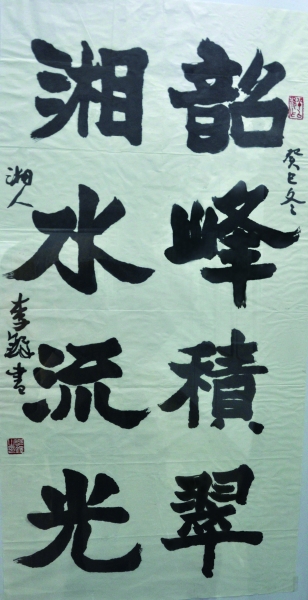 韶峰積翠
癸巳冬
湘水流光
湘人
李鐸書